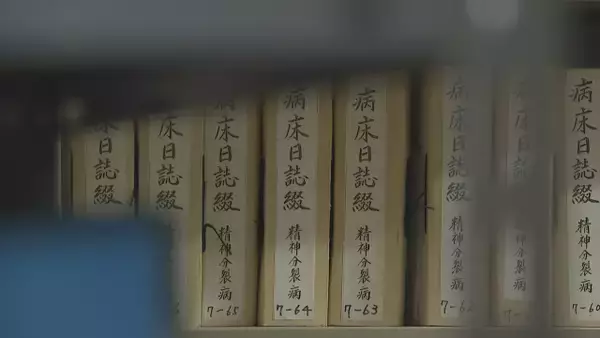 床日誌綴
床日誌綴
床日誌綴
精神分裂病
7-65
病床日誌綴
精神分裂病
7-64
病床日誌綴
精神分裂病
7-63
病床日誌綴
精神分裂病
病床日誌綴
精神分裂病
病床日誌綴
精神分裂病
7-60